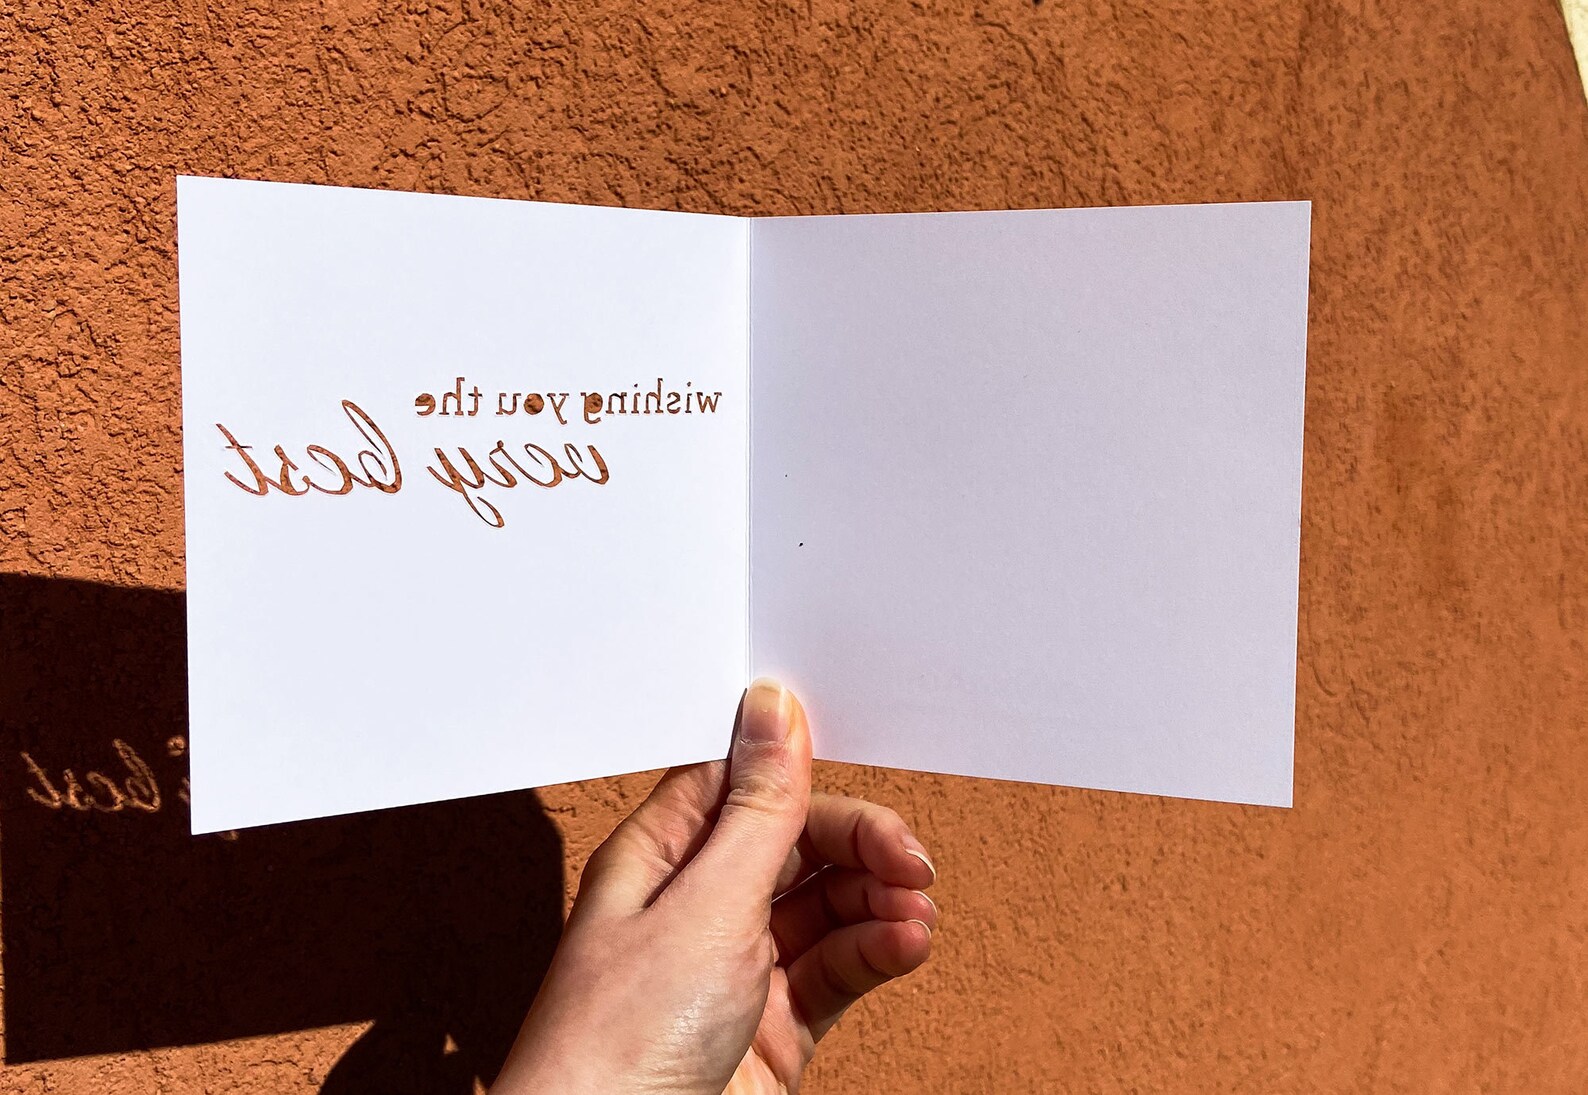 wishing you the
very best
best